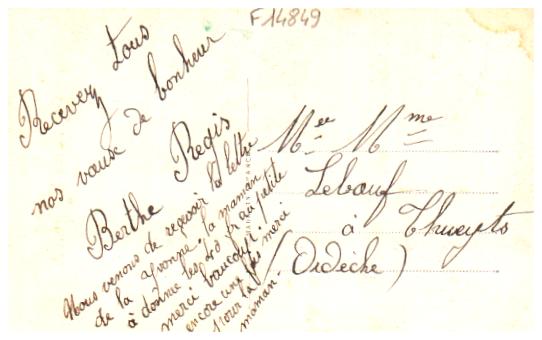 F14849
Recevez tous
nos vœux de bonheur
Berthe Regis
Nous venons de recevoir la lettre
de la yvonne la maman
à donné les 20 fr au petite
merci baucoup
encore une fois merci
pour la
maman.
Mee Mme
Lebœuf
à Thueyts
(Ardèche)